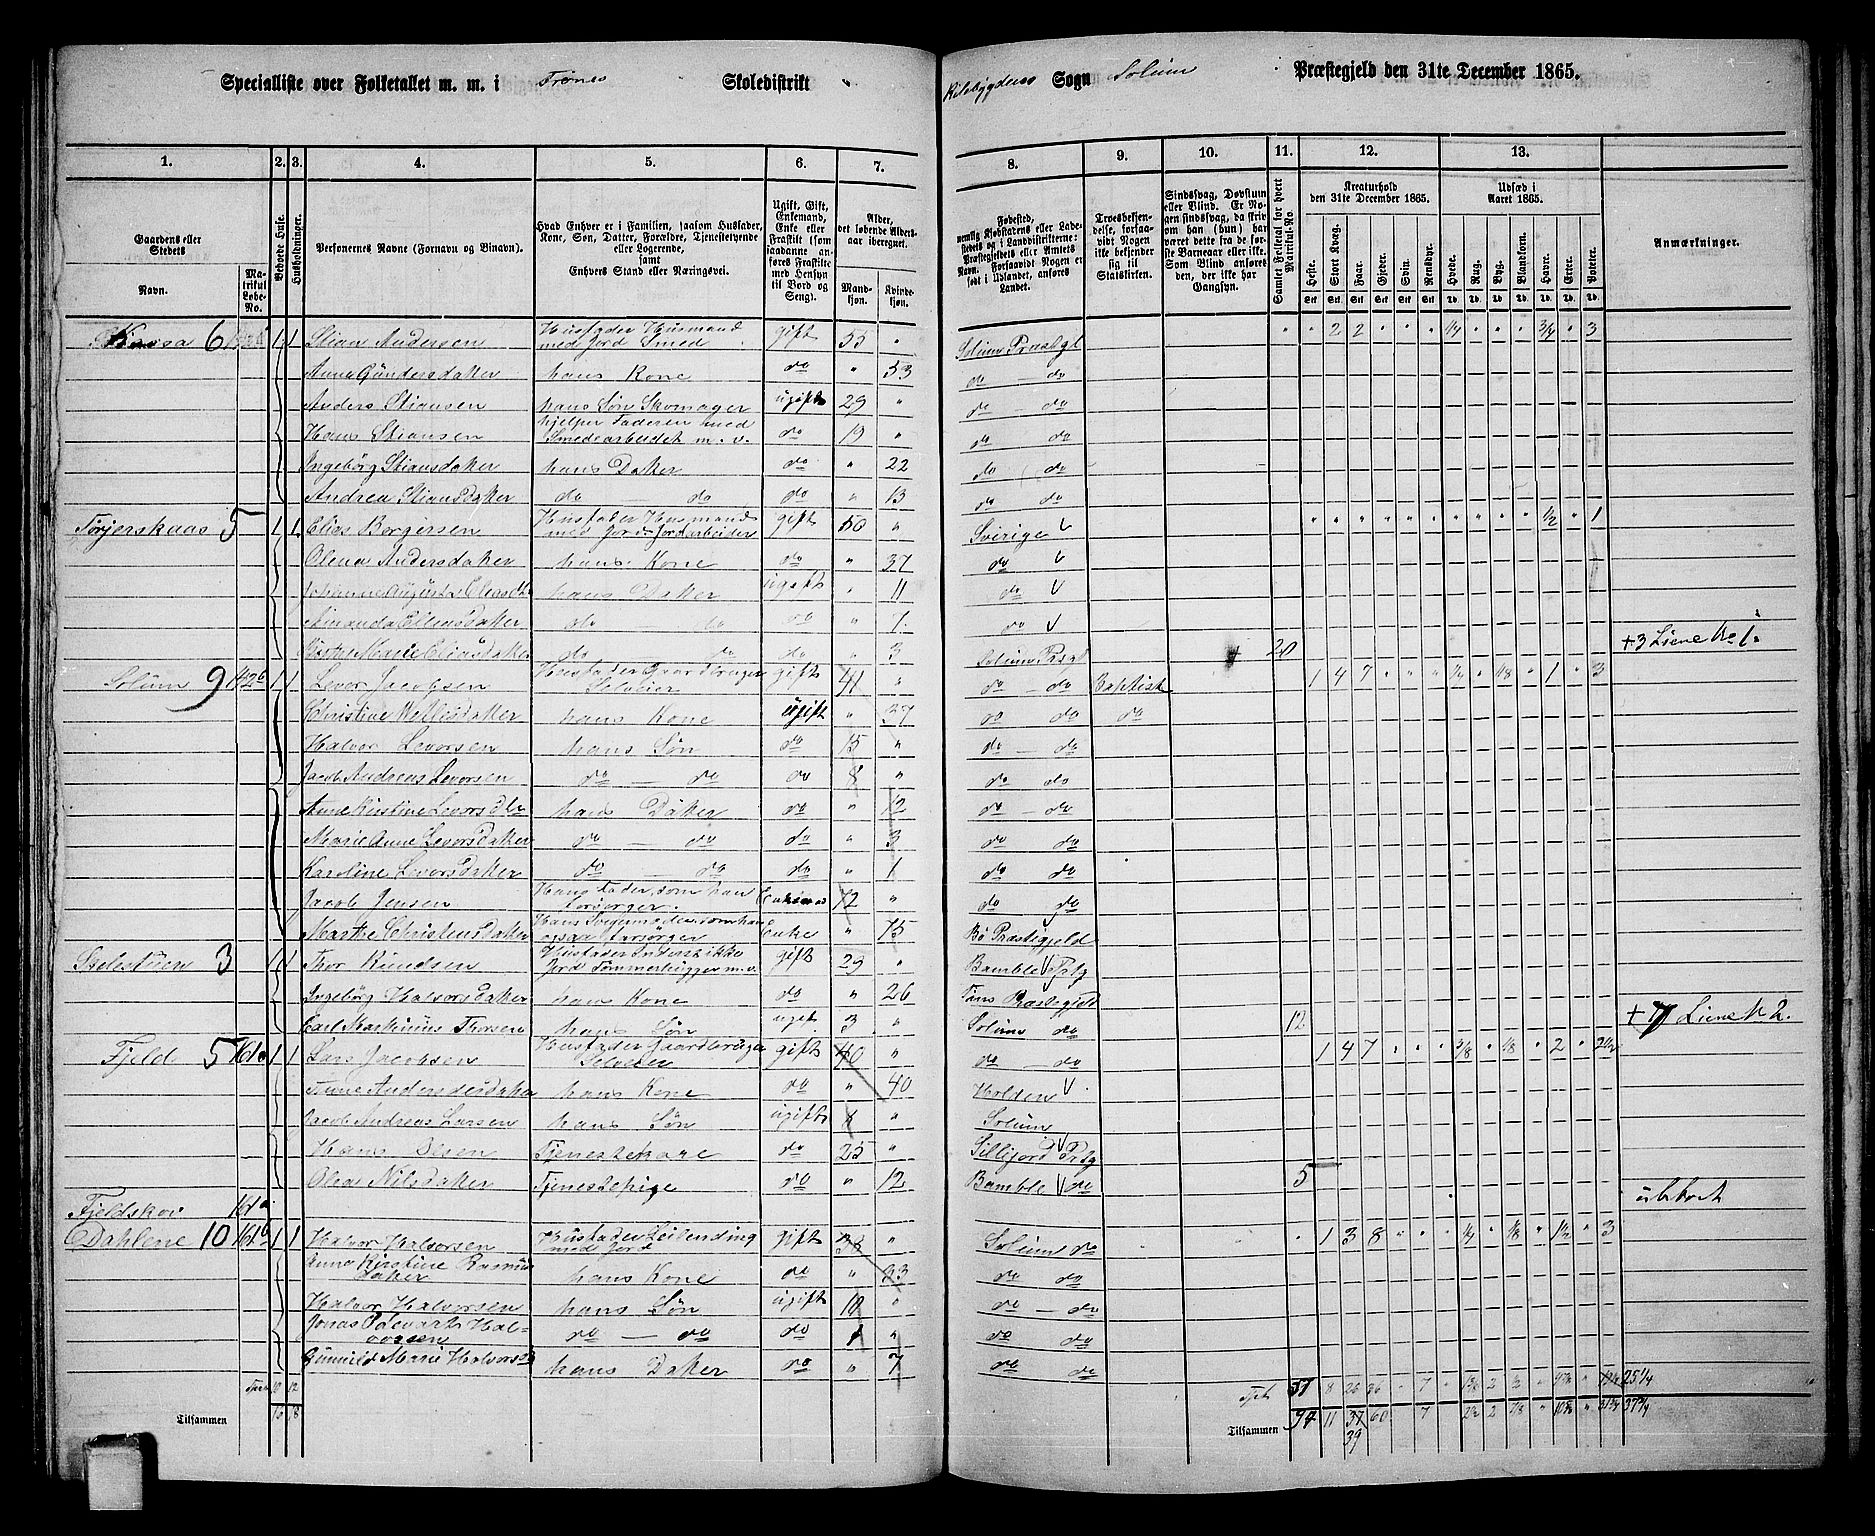 Specialliste over Folketallet m. m. i Trønes Skoledistrikt Kilebygdens Sogn Solum Præstegjeld den 31te December 1865.
1. 2. 3. 4. 5. 6. 7. 8. 9. 10. 11. 12. 13.
Gaardens eller Stedets
Navn.
Matrikul Løbe-No.
Beboede Huse.
Husholdninger.
Personernes Navne (Fornavn og Binavn).
Hvad Enhver er i Familien, saasom Husfader, Kone, Søn, Datter, Forældre, Tjenestetyende eller Logerende,
samt
Enhvers Stand eller Næringsvei.
Ugift, Gift, Enkemand, Enke eller Fraskilt (som saadanne anføres Fraskilte med Hensyn til Bord og Seng).
Alder, det løbende Aldersaar iberegnet.
Mandkjøn.
Kvindekjøn.
Fødested,
nemlig Kjøbstadens eller Ladestedets og i Landdistrikterne: Præstegjeldets eller Amtets Navn. Forsaavidt Nogen er født i Udlandet, anføres Landet.
Troesbekjendelse, forsaavidt Nogen ikke bekjender sig til Statskirken.
Sindssvag, Døvstum eller Blind. Er Nogen sindssvag, da skrives om han (hun) har været dette fra de første Barneaar eller ikke. Som Blind anføres den, der ikke har Gangsyn.
Samlet Folketal for hvert Matrikul-No.
Kreaturhold den 31te December 1865.
Heste. Stort Kvæg. Faar. Gjeder. Svin. Rensdyr.
Udsæd i Aaret 1865.
Hvede. Rug. Byg. Blandkorn. Havre. Erter. Poteter.
Anmærkninger.
Kaasa 6 1 1 Stian Andersen Husfader Husmand med Jord Smed gift 55 " Solum Præstgl " " 2 2 " " " 1/4 " " " 3/4 " 3
Anne Gundersdatter hans Kone do " 53 do — do
Anders Stiansen hans Søn Skomager ugift 29 " do — do
Hans Stiansen hjelper Faderen med Smedearbeidet m. v. do 19 " do do
Ingebørg Stiansdatter hans Datter do " 22 do do
Andrea Stiansdatter do — do do " 13 do do
Torjerskaas 5 1 1 Elias Bergersen Husfader Husmand med Jord Jordarbeider gift 50 " Sverige V " " " " " " " " " " 1/2 " 1
Olena Andersdatter hans Kone do " 37 do V
Johanne Augusta Eliasdtr hans Datter ugift " 11 do V
Amanda Eliasdatter do — do do " 7 do V
Marie Eliasdatter do do do " 3 Solum Prsgl 20 +3 Liene No 1.
Solum 9 1 1 Levor Jacobsen Husfader Gaardbruger Selveier gift 41 " do — do Baptist 1 4 7 " " " 1/4 " 1/8 " 1 " 3
Christine Nettisdatter hans Kone ugift " 37 do do do
Halvor Levorsen hans Søn do 15 " do — do
Jacob Andreas Levorsen do — do do 8 " do do
Anne Kirstine Levorsdtr hans Datter do " 12 do — do
Marie Anne Levorsdatter do — do do " 3 do do
Karoline Levorsdatter do — do do " 1 do do
Jacob Jensen Hans Fader, som han forsørger. Enkemand 72 " do do
Marthe Christensdatter Hans Svigermoder, som han ogsaa forsørger Enke " 75 Bø Præstegjeld
3 1 1 Thor Knudsen Husfader Inderst ikke Jord Tømmerhugger m. v. gift 29 " Bamble V Prsg
Ingebørg Halvorsdatter hans Kone do " 26 Præstegjeld
Carl Martinius Thorsen hans Søn ugift 3 " Solum do 12 +7 Liene N 2.
Fjeld 5 1 1 Lars Jacobsen Husfader Gaardbruger Selveier gift 40 " do — do 1 4 7 " " " 3/8 " 1/8 " 2 " 2 1/2
Anne Andersdatter hans Kone do " 40 Holden V
Jacob Andreas Larsen hans Søn ugift 8 " Solum
Hans Olsen Tjenestekarl do 25 " Sillejord V Prstg
Olea Nilsdatter Tjenestepige do " 12 Bamble V do 5
Fjeldskov ubebot
Dahlene 10 1 1 Halvor Halvorsen Husfader Leilending med Jord gift 38 " Solum do 1 3 8 " " " 1/4 " 1/8 " 1 1/2 " 3
Anna Kirstine Rasmusdatter hans Kone do " 33 do do
Halvor Halvorsen hans Søn ugift 10 " do — do
Jonas Edevart Halvorsen do — do do 1 " do do
Gunnild Marie Halvorsd hans Datter do " 7 do do
10 12 37 8 26 36 " 7 " 2 1/2 " 25 1/4
Tilsammen 16 18 Tilsammen 94 11 37 60 " 7 2 7/8 " " 37 3/4
39